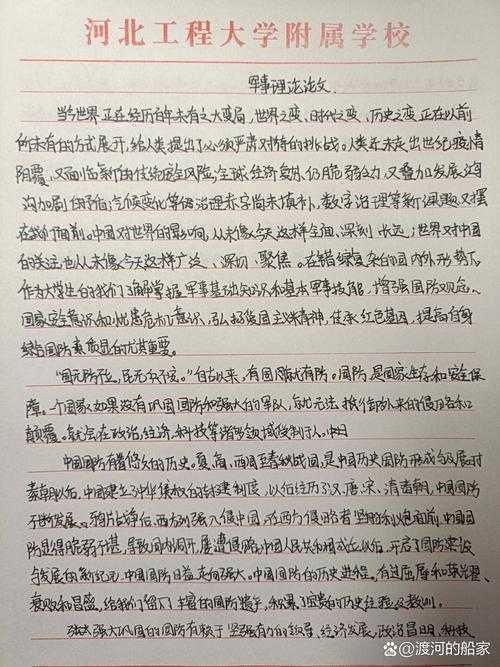 河北工程大学附属学校
军事理论论文
当今世界正在经历百年未有之大变局,世界之变、时代之变、历史之变正在以前
所未有的方式展开,给人类提出了必须严肃对待的挑战。人类还未走出世纪疫情
阴霾,又面临新的传统安全风险;全球经济复苏仍脆弱乏力,又叠加发展鸿
沟加剧的矛盾;气候变化等治理赤字尚未填补,数字治理等新课题又摆
在我们面前。中国对世界的影响,从未像今天这样全面、深刻、长远;世界对中国
的关注也从未像今天这样广泛、深切、聚焦。在错综复杂的国内外形势下,
作为大学生的我们了解掌握军事基础知识和基本军事技能,增强国防观念、
国家安全意识和忧患危机意识,弘扬爱国主义精神,传承红色基因,提高自身
综合国防素质显的尤其重要。
“国无防不立,民无不安。”自古以来,有国就有防。国防是国家生存和安全保
障。一个国家如果没有巩固国防和强大的军队,就无法抵御外来的侵略和
颠覆。就会在政治,经济,科技等诸多领域受制于人。
中国国防有着悠久的历史。夏、商、西周至春秋战国,是中国历史国防形成与发展时
秦朝以后,中国建立了中央集权的封建制度,以后经历了汉、唐、宋、清各朝,中国国防
不断发展。鸦片战争后,西方列强入侵中国,在西方侵略者坚船利炮面前,中国国
防显得脆弱不堪,导致国门洞开,屡遭侵略,中华人民共和国成立以后,开启了国防建设
与发展的新纪元,中国国防日益走向强大。中国国防的历史进程,有过屈辱和荣耀、
衰败和昌盛,给我们留下丰富的国防遗产,积累了宝贵的历史经验及教训。
强大巩固的国防有赖于坚强有力的领导、经济发展,政治昌明,科技
@渡河的船家